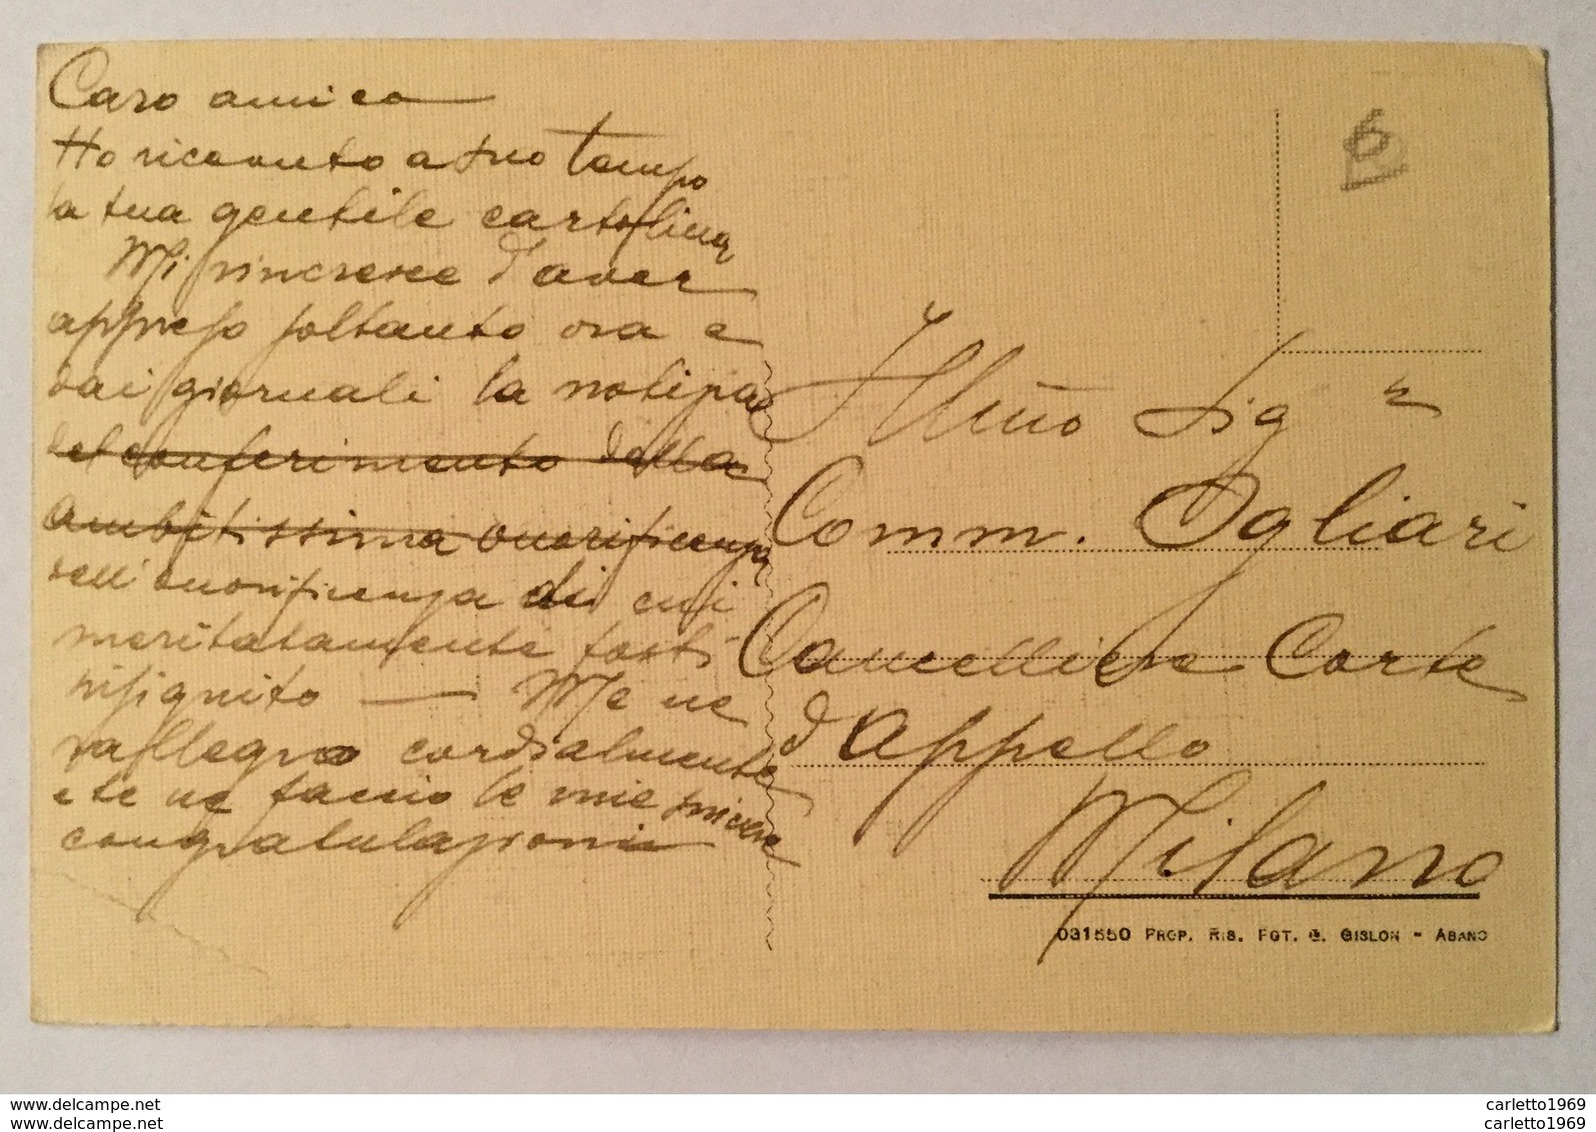 Caro amico
Ho ricevuto a suo tempo
la tua gentile cartolina
Mi rincresce d'aver
appreso soltanto ora e
dai giornali la notizia
del conferimento della
ambitissima onorificenza
dell'onorificenza di cui
meritatamente fosti
insignito — Me ne
rallegro cordialmente
e te ne faccio le mie sincere
congratulazioni
6
Illmo Sigr
Comm. Ogliari
Cancelliere Corte
d'Appello
Milano
031550 PROP. RIS. FOT. G. GISLON - ABANO
www.delcampe.net
www.delcampe.net
carletto1969
carletto1969